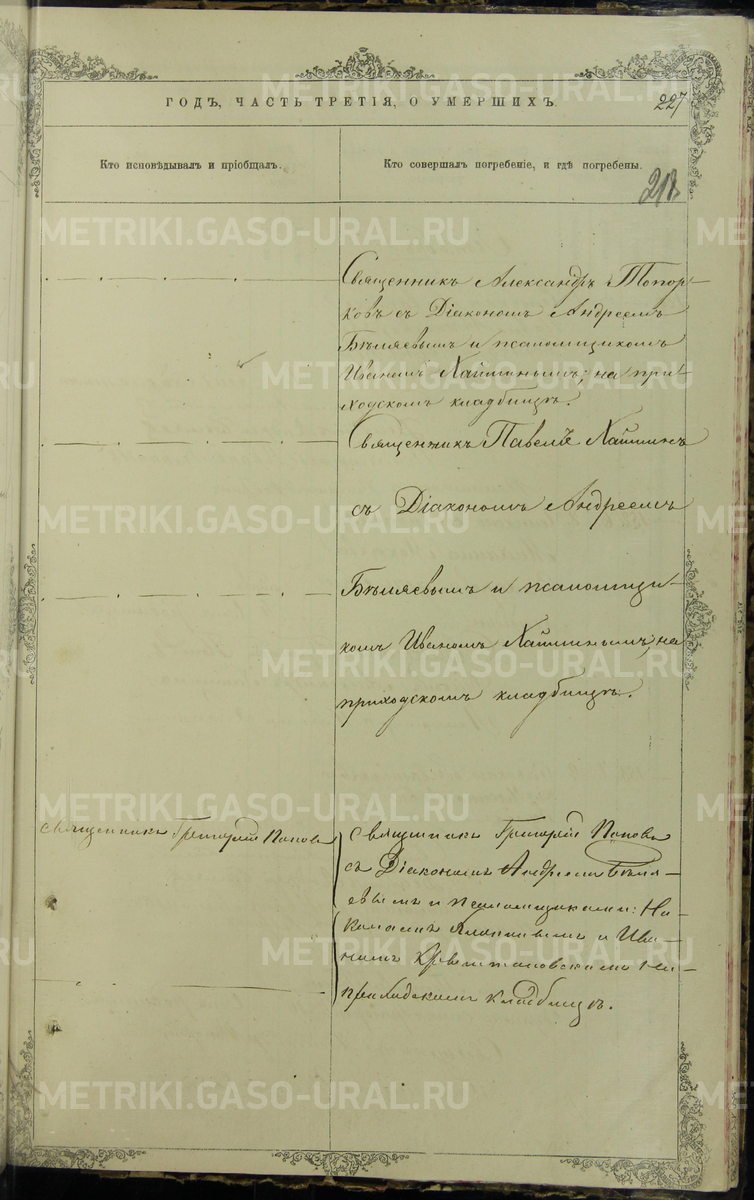 ГОДЪ, ЧАСТЬ ТРЕТІЯ, О УМЕРШИХЪ.
227
Кто исповѣдывалъ и пріобщалъ.
Кто совершалъ погребеніе, и гдѣ погребены.
218
Священникъ Александръ Топор-
ковъ съ Діакономъ Андреемъ
Бѣляевымъ и псаломщикомъ
Иваномъ Хайминымъ; на при-
ходскомъ кладбищѣ.
Священникъ Павелъ Хайминъ
съ Діакономъ Андреемъ
Бѣляевымъ и псаломщи-
комъ Иваномъ Хайминымъ, на
приходскомъ кладбищѣ.
Священникъ Григорій Поповъ
Священникъ Григорій Поповъ
съ Діакономъ Андреемъ Бѣля-
евымъ и псаломщиками: Ни-
колаемъ и Ива-
номъ на
приходскомъ кладбищѣ.
METRIKI.GASO-URAL.RU